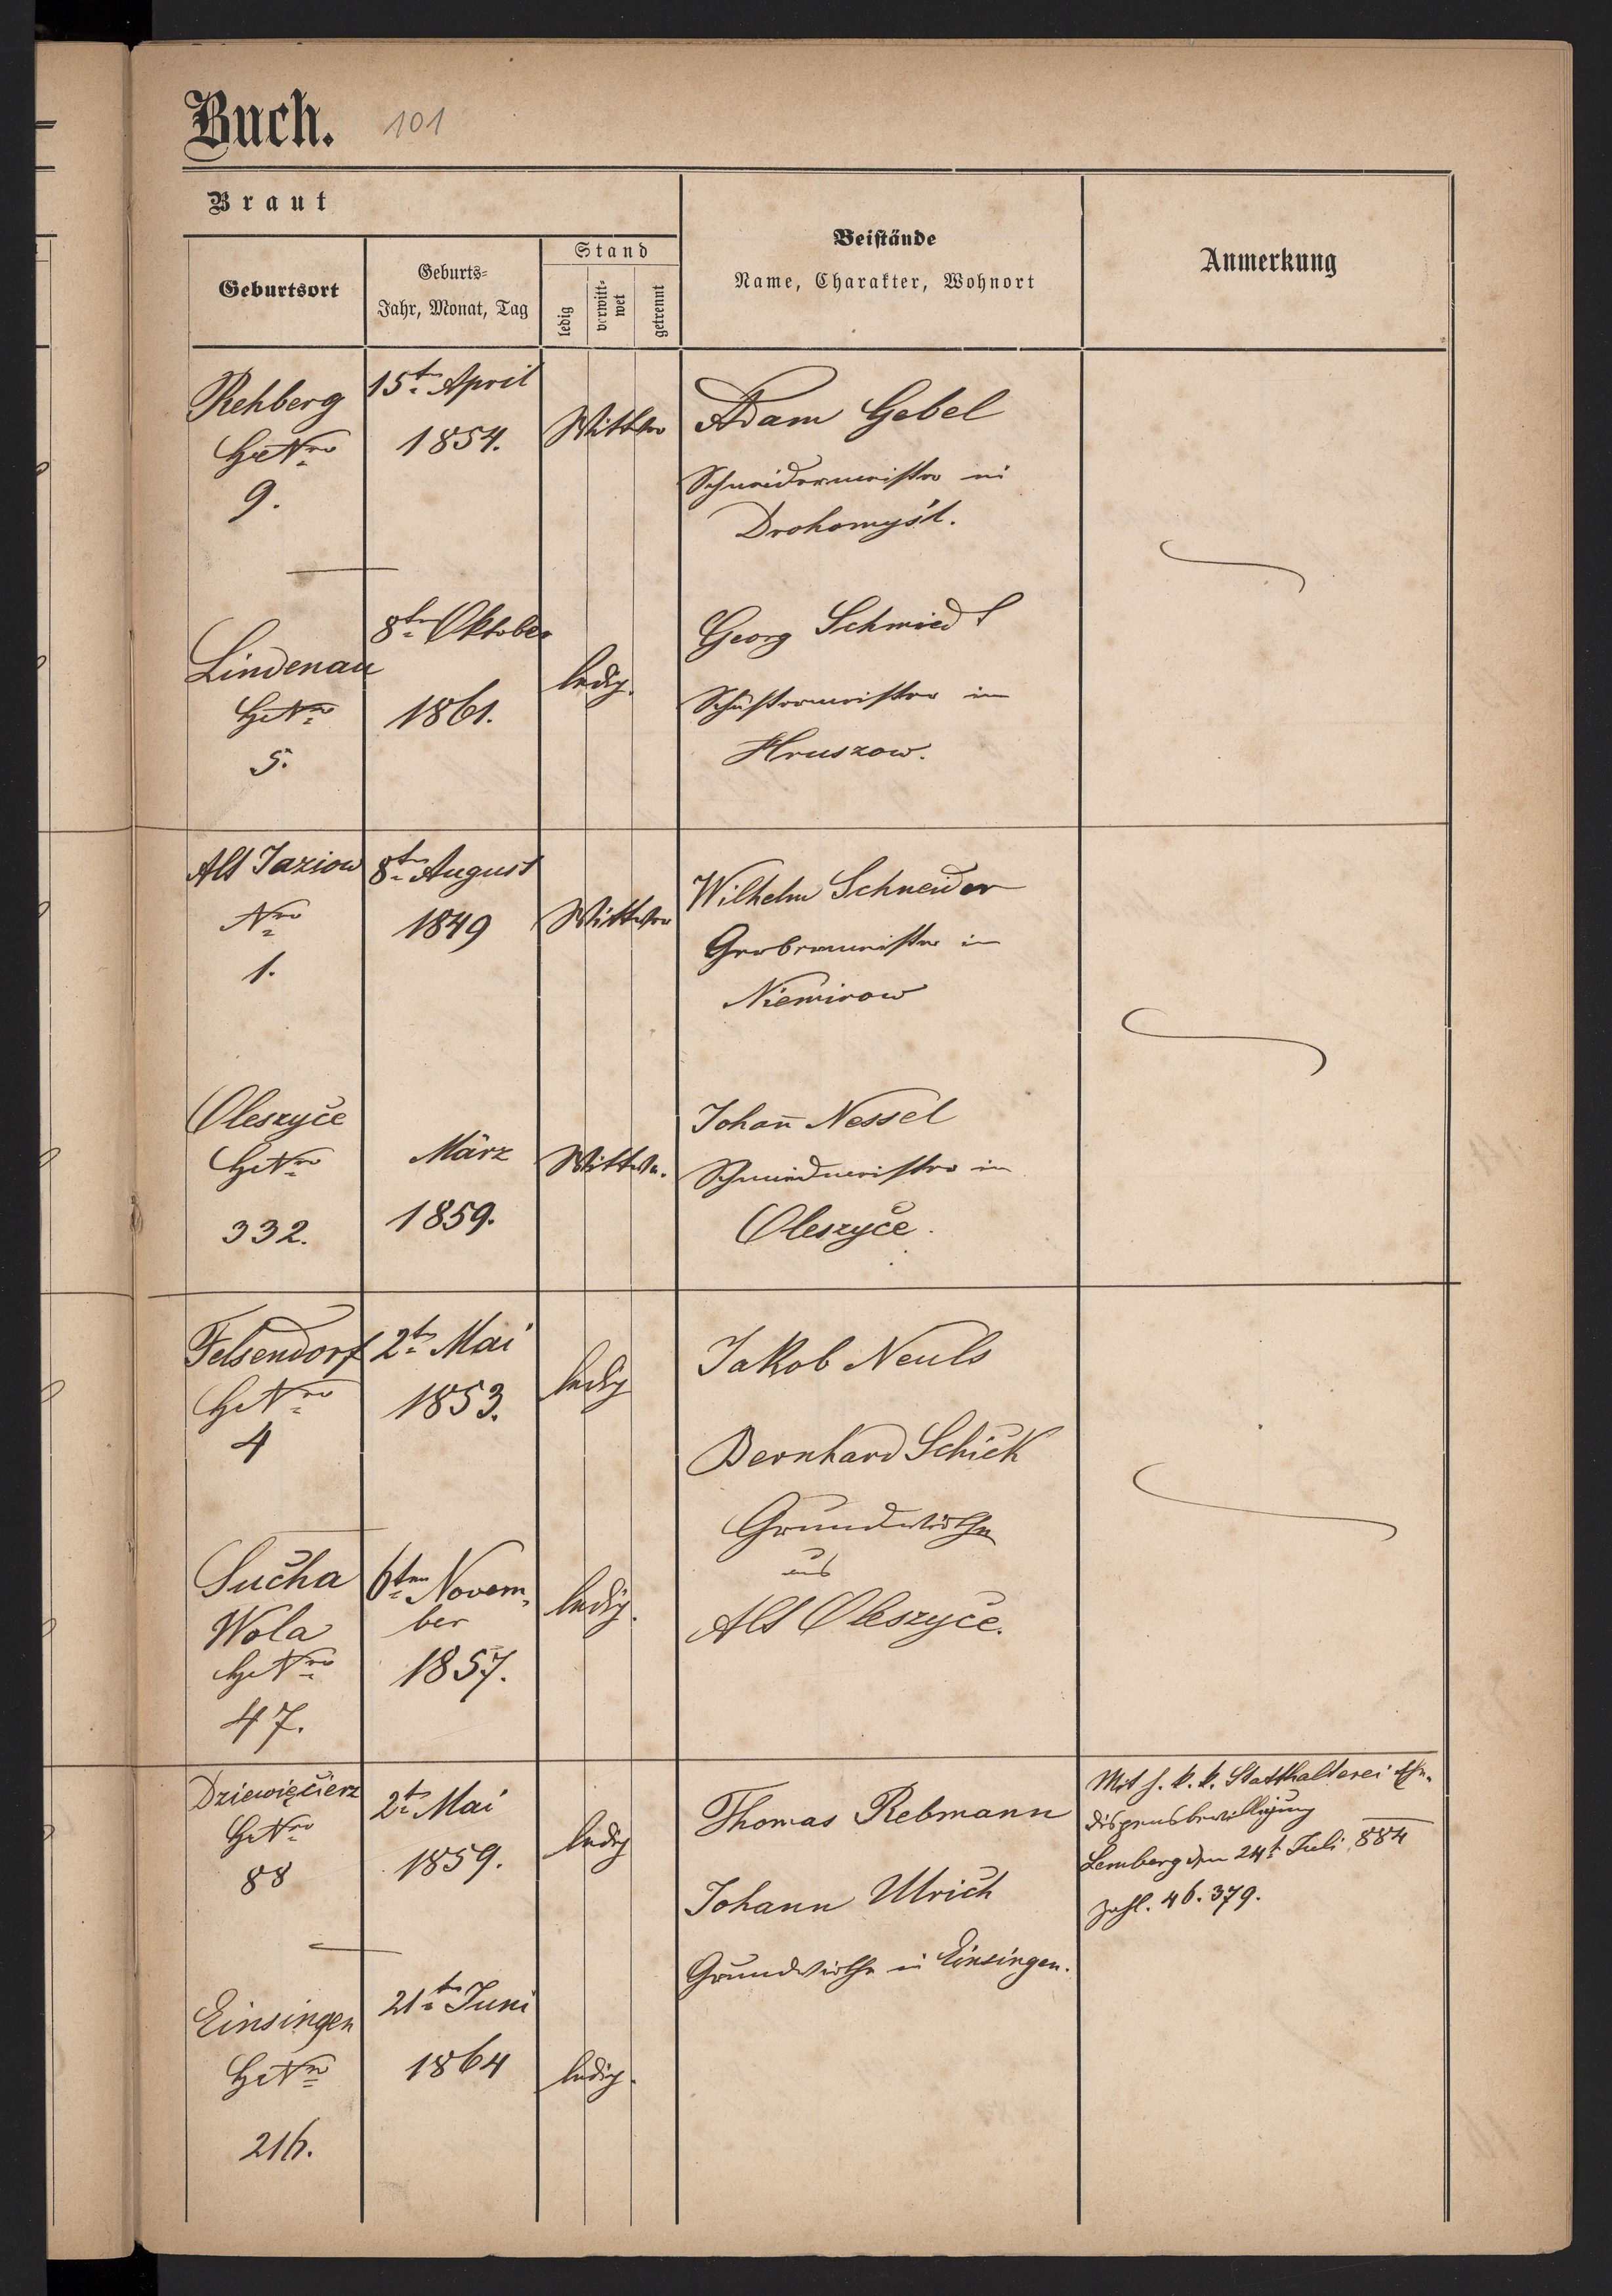 Buch. 101
Braut
Geburtsort
Geburts-
Jahr, Monat, Tag
Stand
ledig
verwitt-
wet
getrennt
Beistände
Name, Charakter, Wohnort
Anmerkung
Rehberg
HNro
9.
15ten April
1854.
Wittwe
Adam Gebel
Schneidermeister in
Drohomyśl.
Lindenau
HNro
5.
8ten Oktober
1861.
ledig.
Georg Schmied
Schustermeister in
Hruszow.
Alt Jaziow
Nro
1.
8ten August
1849
Wittwer
Wilhelm Schneider
Gerbermeister in
Niemirow
Oleszyce
HNro
332.
März
1859.
Wittwe.
Johan̄ Nessel
Schmiedmeister in
Oleszyce.
Felsendorf
HNro
4
2ten Mai
1853.
ledig
Jakob Neuls
Bernhard Schick
Grundwirthe
aus
Alt Oleszyce.
Sucha
Wola
HNro
47.
6ten Novem-
ber
1857.
ledig.
Dziewięcierz
HNro
88
2ten Mai
1859.
ledig
Thomas Rebmann
Johann Ulrich
Grundwirthe in Einsingen.
Mit h. k. k. Statthalterei Ehe-
dispensbewilligung
Lemberg den 24t Juli 884
Zahl. 46.379.
Einsingen
HNro
216.
21ten Juni
1864
ledig.